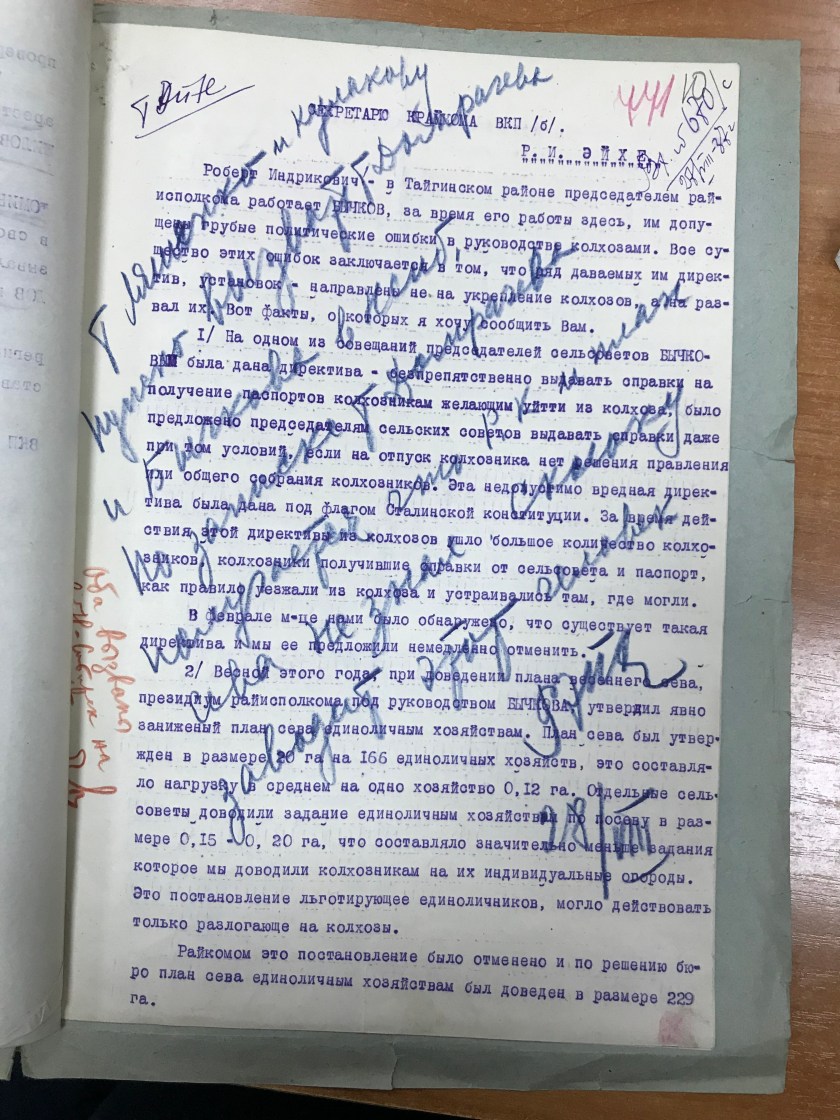 441
СЕКРЕТАРЮ КРАЙКОМА ВКП /б/.
Р. И. ЭЙХЕ.
Роберт Индрикович - в Тайгинском районе председателем рай-
исполкома работает БЫЧКОВ, за время его работы здесь, им допу-
щены грубые политические ошибки в руководстве колхозами. Все су-
щество этих ошибок заключается в том, что ряд даваемых им дирек-
тив, установок - направлены не на укрепление колхозов, а на раз-
вал их. Вот факты, о которых я хочу сообщить Вам.
1/ На одном из совещаний председателей сельсоветов БЫЧКО-
ВЫМ была дана директива - безпрепятственно выдавать справки на
получение паспортов колхозникам желающим уйтти из колхоза, было
предложено председателям сельских советов выдавать справки даже
при том условий, если на отпуск колхозника нет решения правления
или общего собрания колхозников. Эта недопустимо вредная дирек-
тива была дана под флагом Сталинской конституции. За время дей-
ствия этой директивы из колхозов ушло большое количество колхо-
зников, колхозники получившие справки от сельсовета и паспорт,
как правило уезжали из колхоза и устраивались там, где могли.
В феврале м-це нами было обнаружено, что существует такая
директива и мы ее предложили немедленно отменить.
2/ Весной этого года, при доведении плана весеннего сева,
президиум райисполкома под руководством БЫЧКОВА, утвердил явно
заниженый план сева единоличным хозяйствам. План сева был утвер-
жден в размере 20 га на 166 единоличных хозяйств, это составля-
ло нагрузку в среднем на одно хозяйство 0,12 га. Отдельные сель-
советы доводили задание единоличным хозяйствам по посеву в раз-
мере 0,15 - 0, 20 га, что составляло значительно меньше задания
которое мы доводили колхозникам на их индивидуальные огороды.
Это постановление льготирующее единоличников, могло действовать
только разлогающе на колхозы.
Райкомом это постановление было отменено и по решению бю-
ро план сева единоличным хозяйствам был доведен в размере 229
га.
нужно вызвать
и Бычкова в
по записке
получается что
не знал
этот человек
28/VIII
Оба вызваны